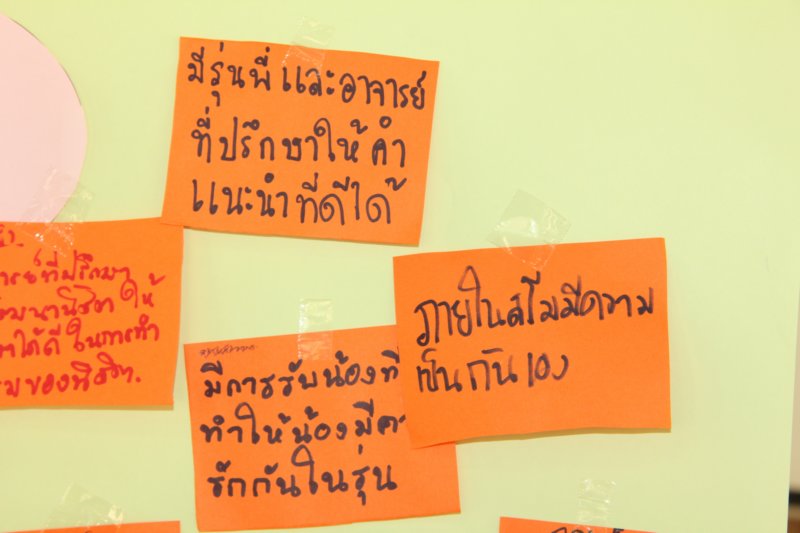 มีรุ่นพี่และอาจารย์
ที่ปรึกษาให้คำ
แนะนำที่ดีได้
ภายในสโมมีความ
เป็นกันเอง
มีการรับน้องที่
ทำให้น้องมี
รักกันในรุ่น
ที่ปรึกษา
ให้
ได้ดี ในการทำ
ของนิสิต.